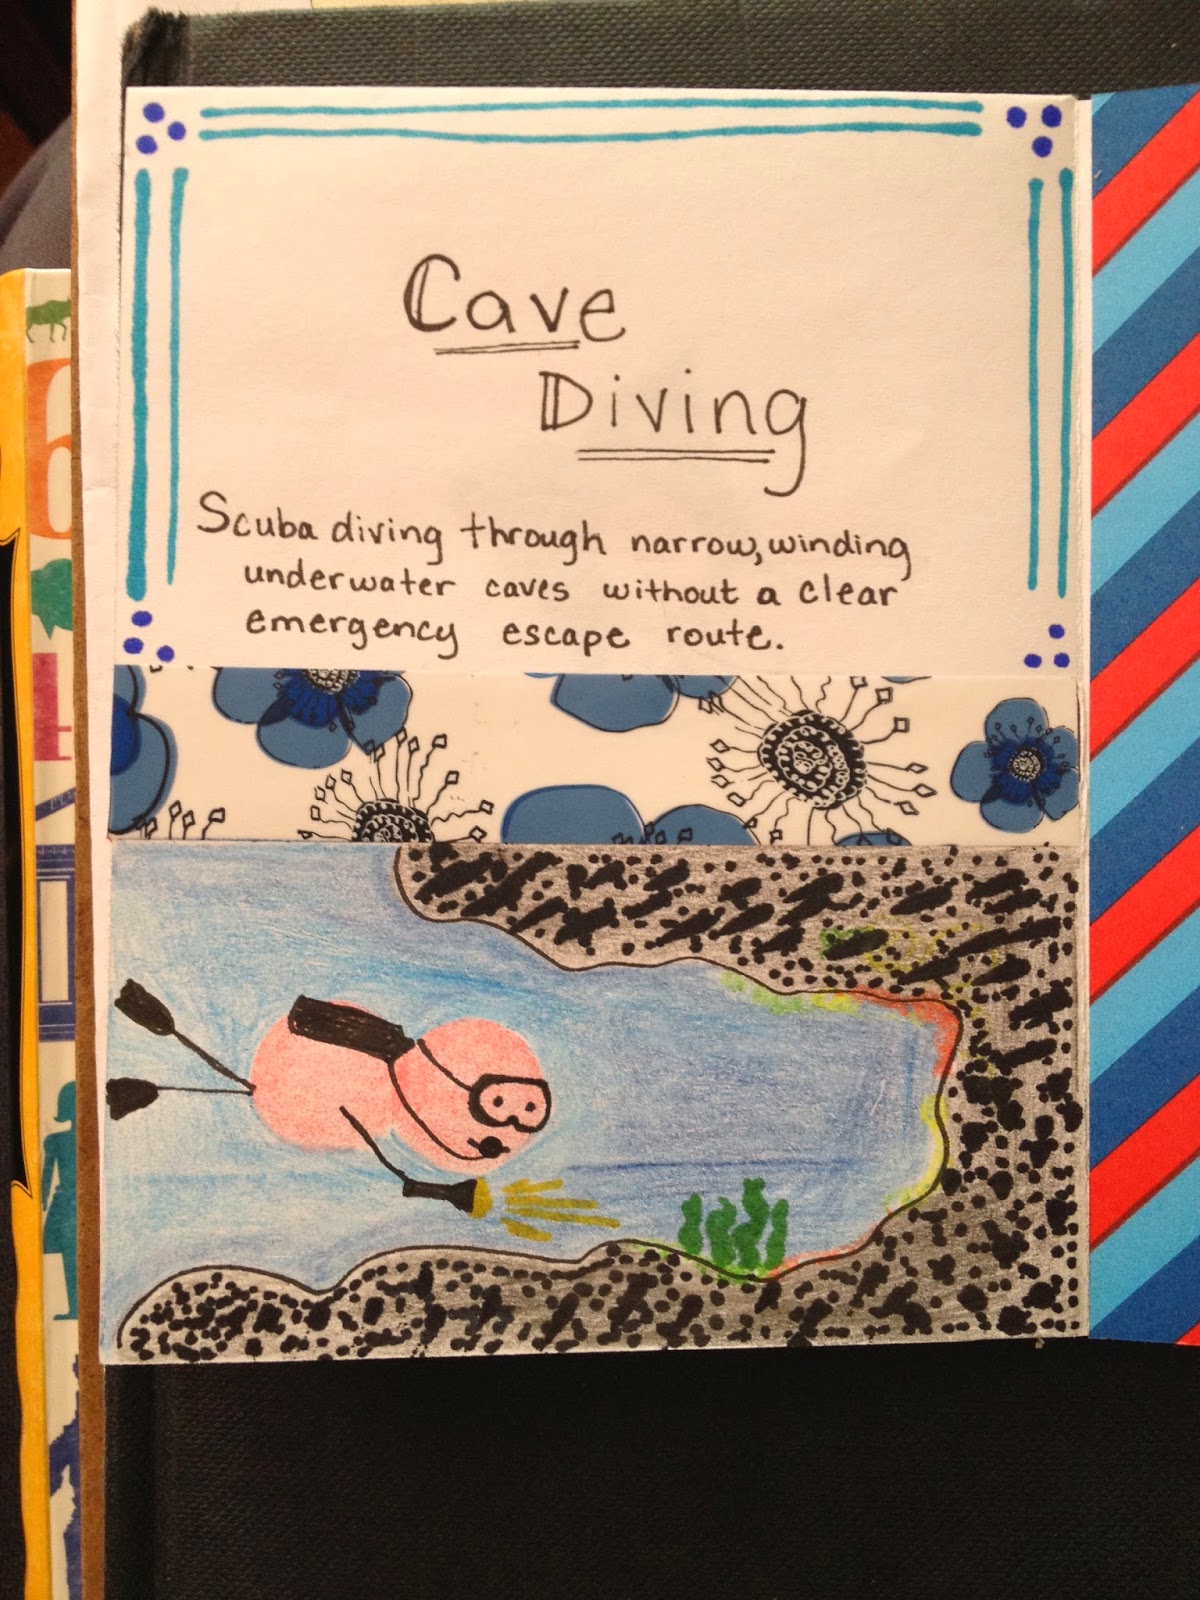 Cave
Diving
Scuba diving through narrow, winding
underwater caves without a clear
emergency escape route.